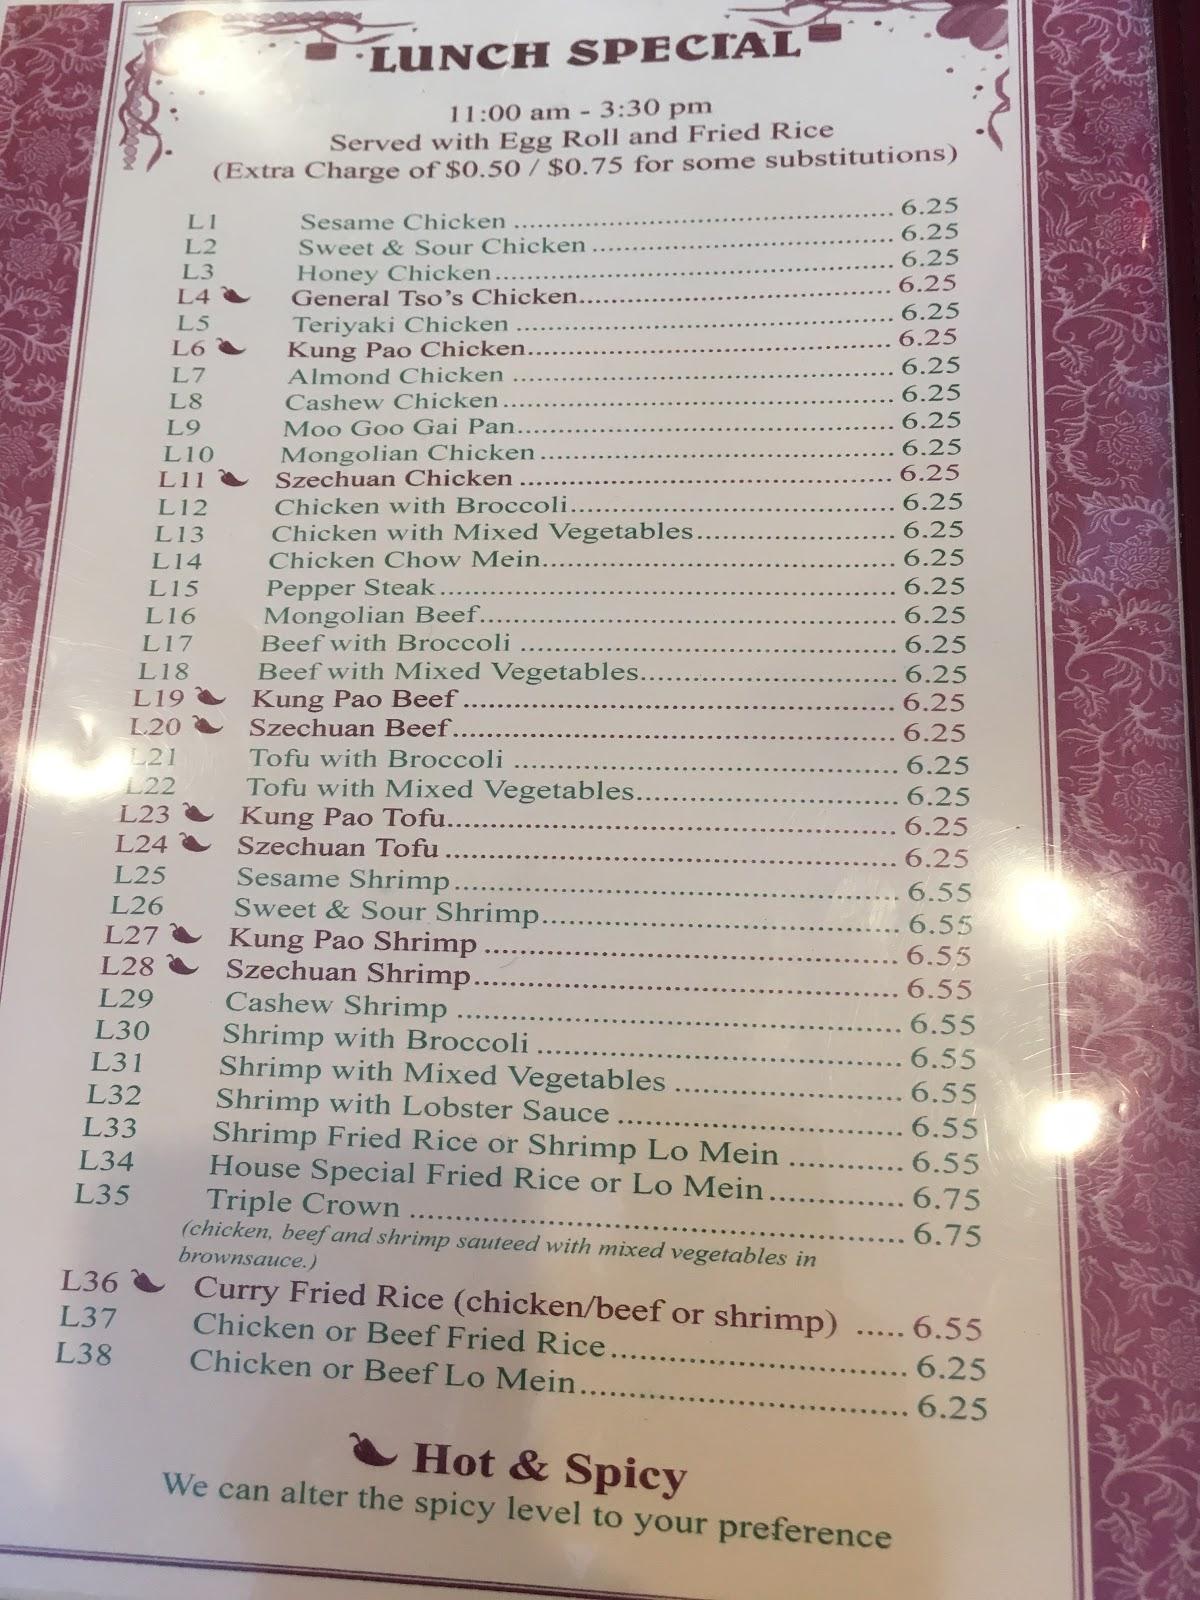 LUNCH SPECIAL
11:00 am - 3:30 pm
Served with Egg Roll and Fried Rice
(Extra Charge of $0.50 / $0.75 for some substitutions)
L1 Sesame Chicken 6.25
L2 Sweet & Sour Chicken 6.25
L3 Honey Chicken 6.25
L4 General Tso's Chicken 6.25
L5 Teriyaki Chicken 6.25
L6 Kung Pao Chicken 6.25
L7 Almond Chicken 6.25
L8 Cashew Chicken 6.25
L9 Moo Goo Gai Pan 6.25
L10 Mongolian Chicken 6.25
L11 Szechuan Chicken 6.25
L12 Chicken with Broccoli 6.25
L13 Chicken with Mixed Vegetables 6.25
L14 Chicken Chow Mein 6.25
L15 Pepper Steak 6.25
L16 Mongolian Beef 6.25
L17 Beef with Broccoli 6.25
L18 Beef with Mixed Vegetables 6.25
L19 Kung Pao Beef 6.25
L20 Szechuan Beef 6.25
L21 Tofu with Broccoli 6.25
L22 Tofu with Mixed Vegetables 6.25
L23 Kung Pao Tofu 6.25
L24 Szechuan Tofu 6.25
L25 Sesame Shrimp 6.55
L26 Sweet & Sour Shrimp 6.55
L27 Kung Pao Shrimp 6.55
L28 Szechuan Shrimp 6.55
L29 Cashew Shrimp 6.55
L30 Shrimp with Broccoli 6.55
L31 Shrimp with Mixed Vegetables 6.55
L32 Shrimp with Lobster Sauce 6.55
L33 Shrimp Fried Rice or Shrimp Lo Mein 6.55
L34 House Special Fried Rice or Lo Mein 6.75
L35 Triple Crown 6.75
(chicken, beef and shrimp sauteed with mixed vegetables in
brownsauce.)
L36 Curry Fried Rice (chicken/beef or shrimp) 6.55
L37 Chicken or Beef Fried Rice 6.25
L38 Chicken or Beef Lo Mein 6.25
Hot & Spicy
We can alter the spicy level to your preference